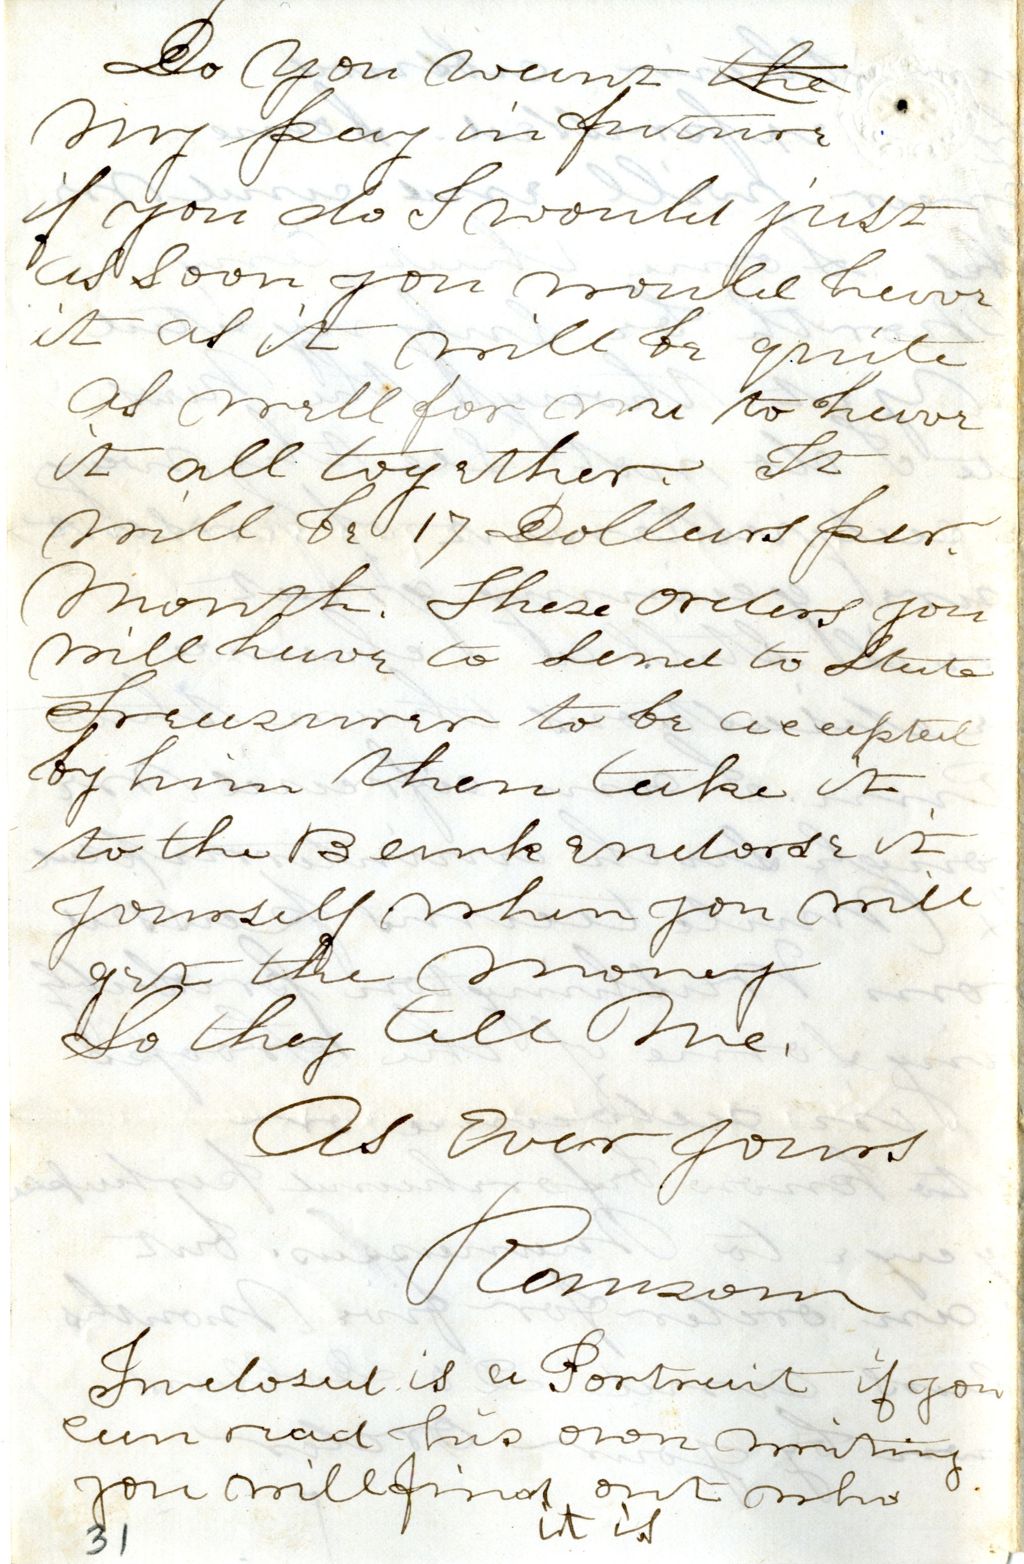 Do you want the
my pay in future
if you do I would just
as soon you would have
it as it will be quite
as well for me to have
it all together. It
will be 17 Dollars per.
Month. These orders you
will have to send to State
Treasurer to be accepted
by him then take it
to the Bank endorse it
yourself when you will
get the money
So they tell Me.
As Ever yours
Ransom
Inclosed is a Portrait if you
can read his own writing
you will find out who
it is
31